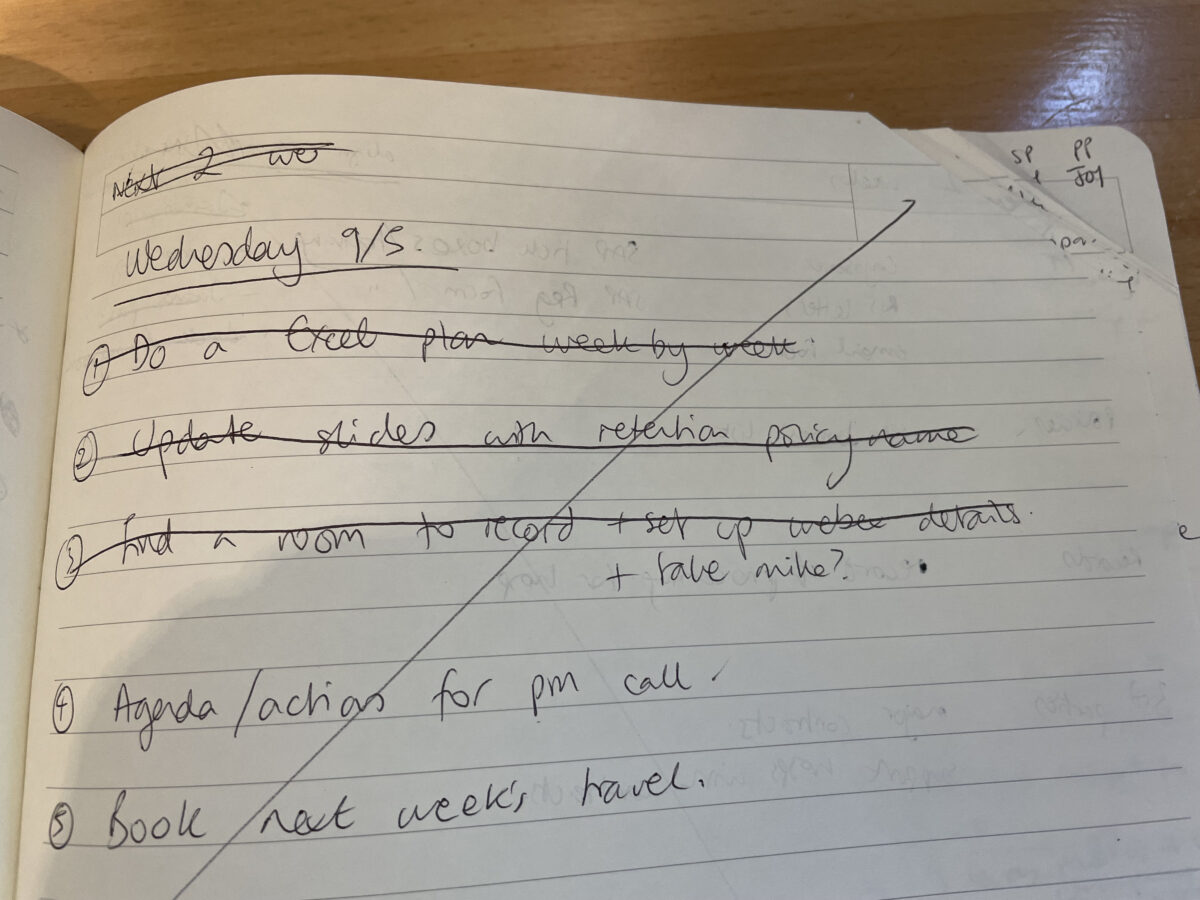 Next 2 wee
Wednesday 9/5.
① Do a Excel plan week by week.
② Update slides with retention policy name
③ find a room to record + set up webex details.
+ take mike?
④ Agenda/actions for pm call.
⑤ Book next week's travel.
SP PP
JOY